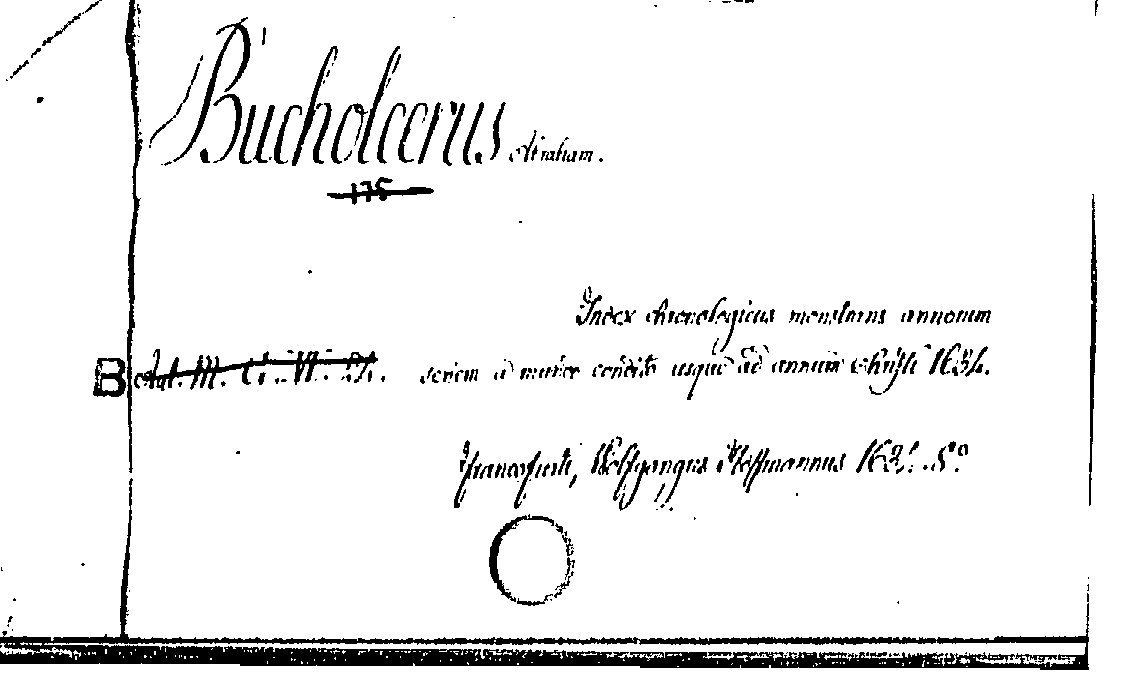 Bucholcerus Abraham.
175
Index chronologicus monstrans annorum
B Aut. M. G. VI. 24. seriem a mundo condito usque ad annum Christi 1634.
Francofurti, Wolfgangus Hoffmannus 1634. 8°